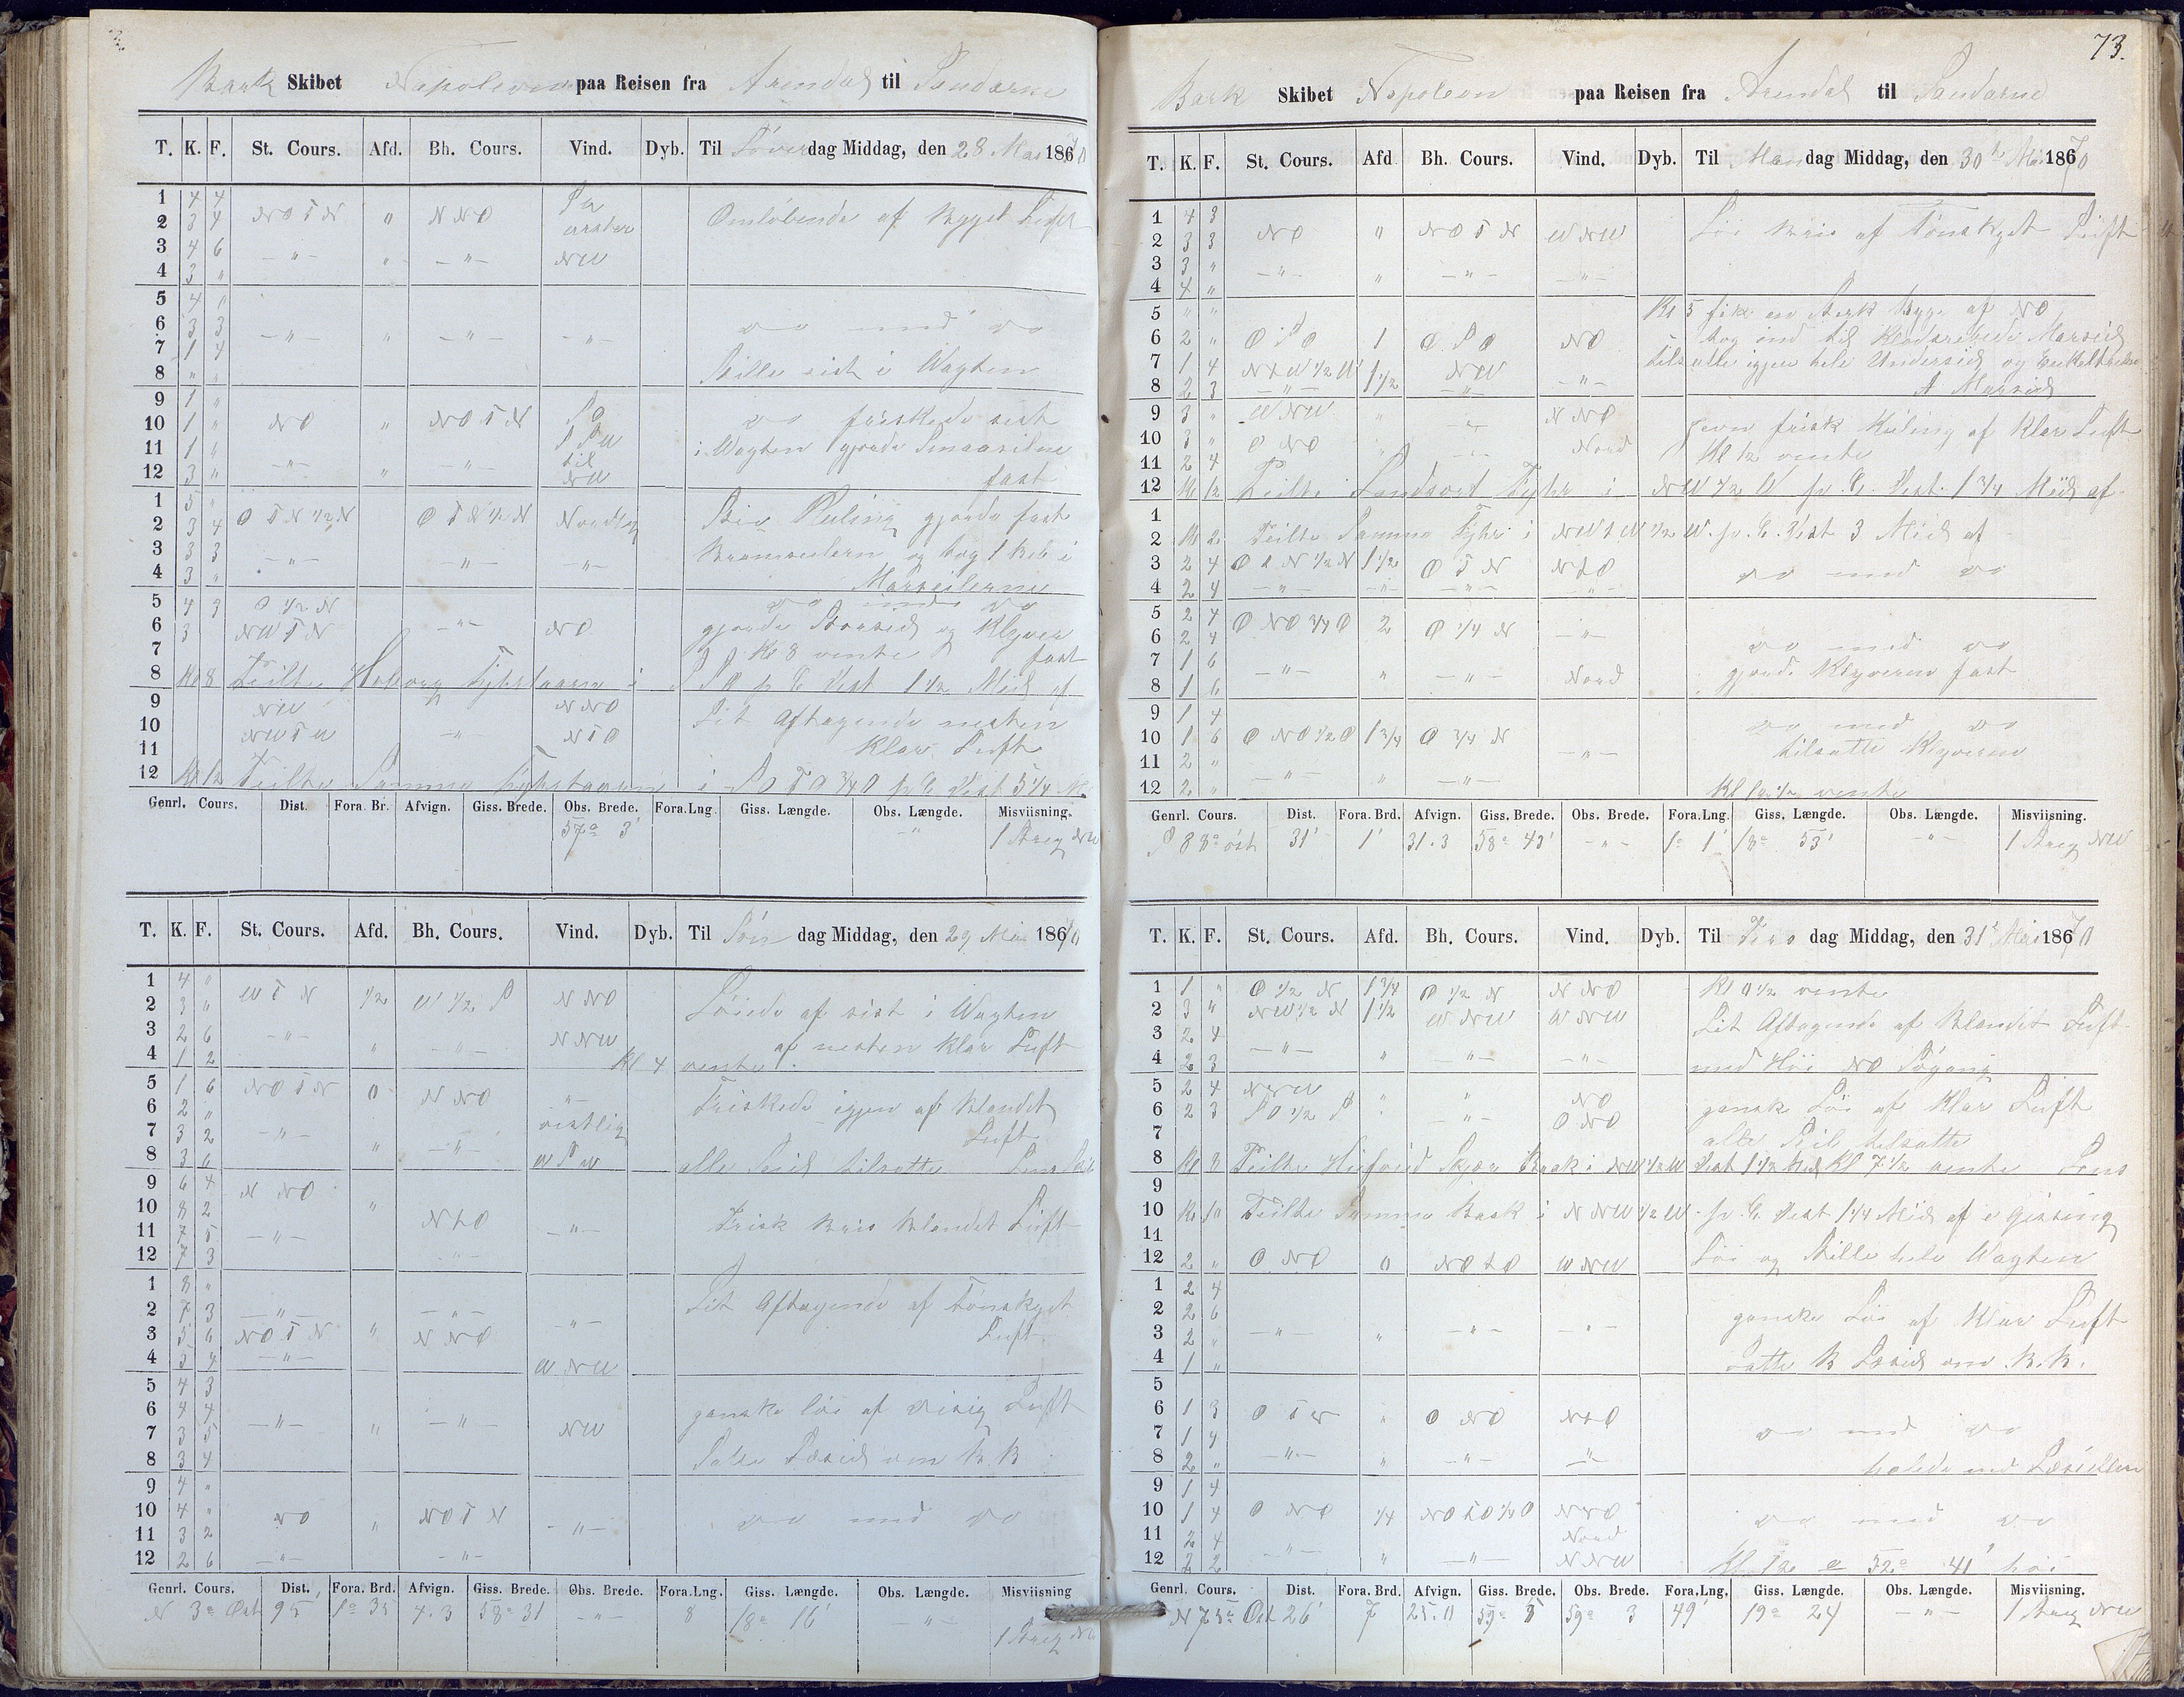 Bark Skibet Napoleon paa Reisen fra Arendal til Sandarne
T. K. F. St. Cours. Afd. Bh. Cours. Vind. Dyb. Til Löverdag Middag, den 28 Mai 1870
1 4 4
2 3 4 NOTN " NNO Omlöbende af Bygget Luft
3 4 6 -"- " -"- NW
4 3 "
5 4 0
6 3 3 -"- " -"- -"- do med do
7 1 4
8 " " Stille sist i Wagten
9 1 "
10 1 " NO " NOTN SO do friskede sist
11 1 " SSW i Wagten gjorde Smaaseilene
12 3 " -"- " -"- til NW fast
1 5 "
2 3 4 OTN 1/2 N OTN 1/2 N Nordlig Stiv Kuling gjorde fast
3 3 3 -"- -"- -"- Bramseilern og tog 1 Reb i
4 3 " Marseilerne
5 4 3 O 1/2 N do med do
6 3 NWTN -"- NO gjorde Storseil og Klyver
7 Kl 8 vente fast
8 Kl 8 Peilte Hoborg Fyhrtaarn i pr C Dist 1 1/2 Miil af
9 NW NNO
10 NWTW -"- NTO Lit Aftagende nesten
11 Klar Luft
12 Kl 12 Peilte Samme Fyhrtaarn i SOTO 3/4 O pr C Dist 5 1/4 M
Genrl. Cours. Dist. Fora. Br. Afvign. Giss. Brede. Obs. Brede. Fora.Lng. Giss. Længde. Obs. Længde. Misviisning.
57° 3' -"- 1 Streg NW
T. K. F. St. Cours. Afd. Bh. Cours. Vind. Dyb. Til Söndag Middag, den 29 Mai 1870
1 4 0
2 3 " WTN 1/2 W 1/2 S NNO Löiede af sist i Wagten
3 2 6 -"- " -"- NNW af nesten klar Luft
4 1 2 Kl 4 vente
5 1 6 NOTN 0 NNO -"-
6 2 " Friskede igjen af blandet
7 3 2 -"- " -"- vestlig Luft
8 3 6 WSW alle Seil tilsatte
9 6 4 NNO
10 8 2 " NTO Frisk Bris blandet Luft
11 7 5 -"- -"-
12 7 3 -"-
1 8 "
2 7 3 -"- -"- Lit Aftagende af Tönskyet
3 5 6 NOTN " NNO -"- Luft
4 5 4 -"- WNW
5 4 3
6 4 4 -"- " -"- ganske löi af disig Luft
7 3 5 NW
8 3 4 Læseil om B.B.
9 4 "
10 4 " NO " NOTN -"- do med do
11 3 2
12 2 6 -"- -"-
Genrl. Cours. Dist. Fora. Brd. Afvign. Giss. Brede. Obs. Brede. Fora.Lng. Giss. Længde. Obs. Længde. Misviisning
N 3° Ost 95' 1° 35 4.3 58° 31 -"- 8 18° 16' -"- 1 Streg NW
73.
Bark Skibet Napoleon paa Reisen fra Arendal til Sandarne
T. K. F. St. Cours. Afd Bh. Cours. Vind. Dyb. Til Mandag Middag, den 30te Mai 1870
1 4 3
2 3 3 NO " NOTN WNW Löi Bris af Tönskyet Luft
3 3 "
4 4 " -"- " -"- -"-
5 " " Kl 5 fik en Stærk Byge af NO
6 2 " OSO 1 OSO NO tog ind til Marseil
7 1 4 NTW 1/2 W NTW tilsatte igjen hele Underseil og
8 2 3 -"- 1 1/2 -"- -"- Marseil
9 3 " WNW " -"- NNO
10 3 " ONO " -"- Nord Jevn frisk Kuling af Klar Luft
11 2 4 Kl 12 vente
12 Kl 12 Peilte Landsort Fyhr i NW 1/2 W pr. C. Dist. 1 3/4 Miil af
1
2 Kl 2 Peilte Samme Fyhr i NWTW 1/2 W. pr. C. Dist 3 Miil af
3 2 4 OTN 1/2 N 1 1/2 OTN NTO do med do
4 2 4 -"- -"- -"- -"-
5 2 4 ONO 3/4 O 2 O 1/4 N -"-
6 2 4 do med do
7 1 6 -"- " -"- Nord gjorde Klyveren fast
8 1 6
9 1 4 do med do
10 1 6 ONO 1/2 O 1 3/4 O 3/4 N -"- tilsatte Klyveren
11 2 "
12 2 " -"- " -"- Kl 12 1/2 vente
Genrl. Cours. Dist. Fora. Brd. Afvign. Giss. Brede. Obs. Brede. Fora.Lng. Giss. Længde. Obs. Længde. Misviisning.
S 88° öst 31' 1' 31.3 58° 43' -"- 1° 1' 18° 53' -"- 1 Streg NW
T. K. F. St. Cours. Afd. Bh. Cours. Vind. Dyb. Til Tirsdag Middag, den 31te Mai 1870
1 1 " O 1/2 N 1 3/4 O 1/2 N NNO Kl 0 1/2 vente
2 3 " NW 1/2 N 1 1/2 WNW WNW Lit Aftagende af Blandet Luft
3 2 4
4 2 3 -"- " -"- -"- med Höi NO Sögang
5 2 4 NTW " " NO
6 2 3 SO 1/2 S " -"- ONO ganske Löi af Klar Luft
7 alle Seil tilsatte
8 Kl 8 Peilte Skjær Baak i NW 1/2 W Dist 1 1/2 Miil Kl 7 1/2 vente
9
10 Kl 10 Peilte Samme Baak i NNW 1/2 W. pr. C. Dist 1 1/4 Miil af e Gissing
11
12 2 " ONO 0 NOTO WNW Löi og Stille hele Wagten
1 2 4
2 2 6 ganske Löi af Klar Luft
3 2 " -"- " -"- -"-
4 1 " satte B Læseil om B.B.
5
6 1 3 OTN " ONO NTO
7 1 4 do med do
8 2 " -"- " -"- -"- halede ind Læseillen
9 1 4
10 1 4 ONO 1/4 NOTO 1/4 O NTO do med do
11 2 4 Nord
12 2 2 -"- " -"- NNW Kl 12 e 52° 41' höi
Genrl. Cours. Dist. Fora. Brd. Afvign. Giss. Brede. Obs. Brede. Fora.Lng. Giss. Længde. Obs. Længde. Misviisning.
N 75° Ost 26' 7 25.0 59° 5 59° 3 49' 19° 24 -"- 1 Streg NW